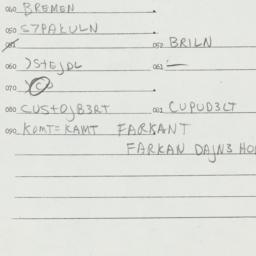 040 BREMEN
050 S7PAKULN
051 052 BRILN
060 )STEJDL 061 —
070
080 CUSTOJB3RT 081 CUPUD3LT
090 KOMT=KAMT FARKANT
FARKAN DAJN3 HO